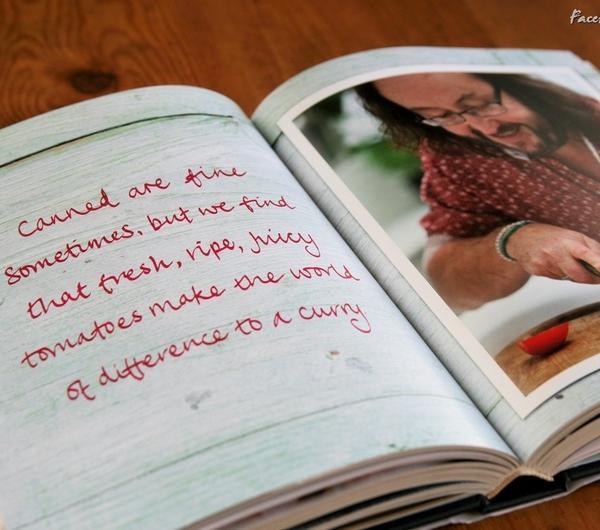 Canned are fine
sometimes, but we find
that fresh, ripe, juicy
tomatoes make the world
of difference to a curry